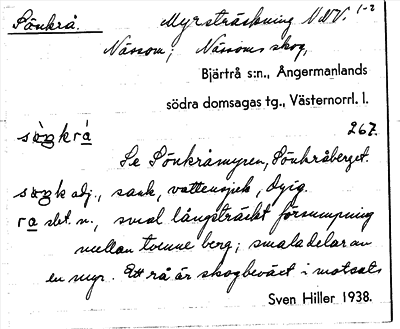 Sönkrå. Myrsträckning NNV. 1-2
Nässom; Nässoms skog,
Bjärtrå s:n., Ångermanlands
södra domsagas tg., Västernorrl. l.
267.
Se Sönkråmyren, Sönkråberget.
adj., sank, vattensjuk, dyig.
slbt. n., smal långsträckt försumpning
mellan tvenne berg; smala delar av
en myr. Ett rå är skogbeväxt i motsats
Sven Hiller 1938.